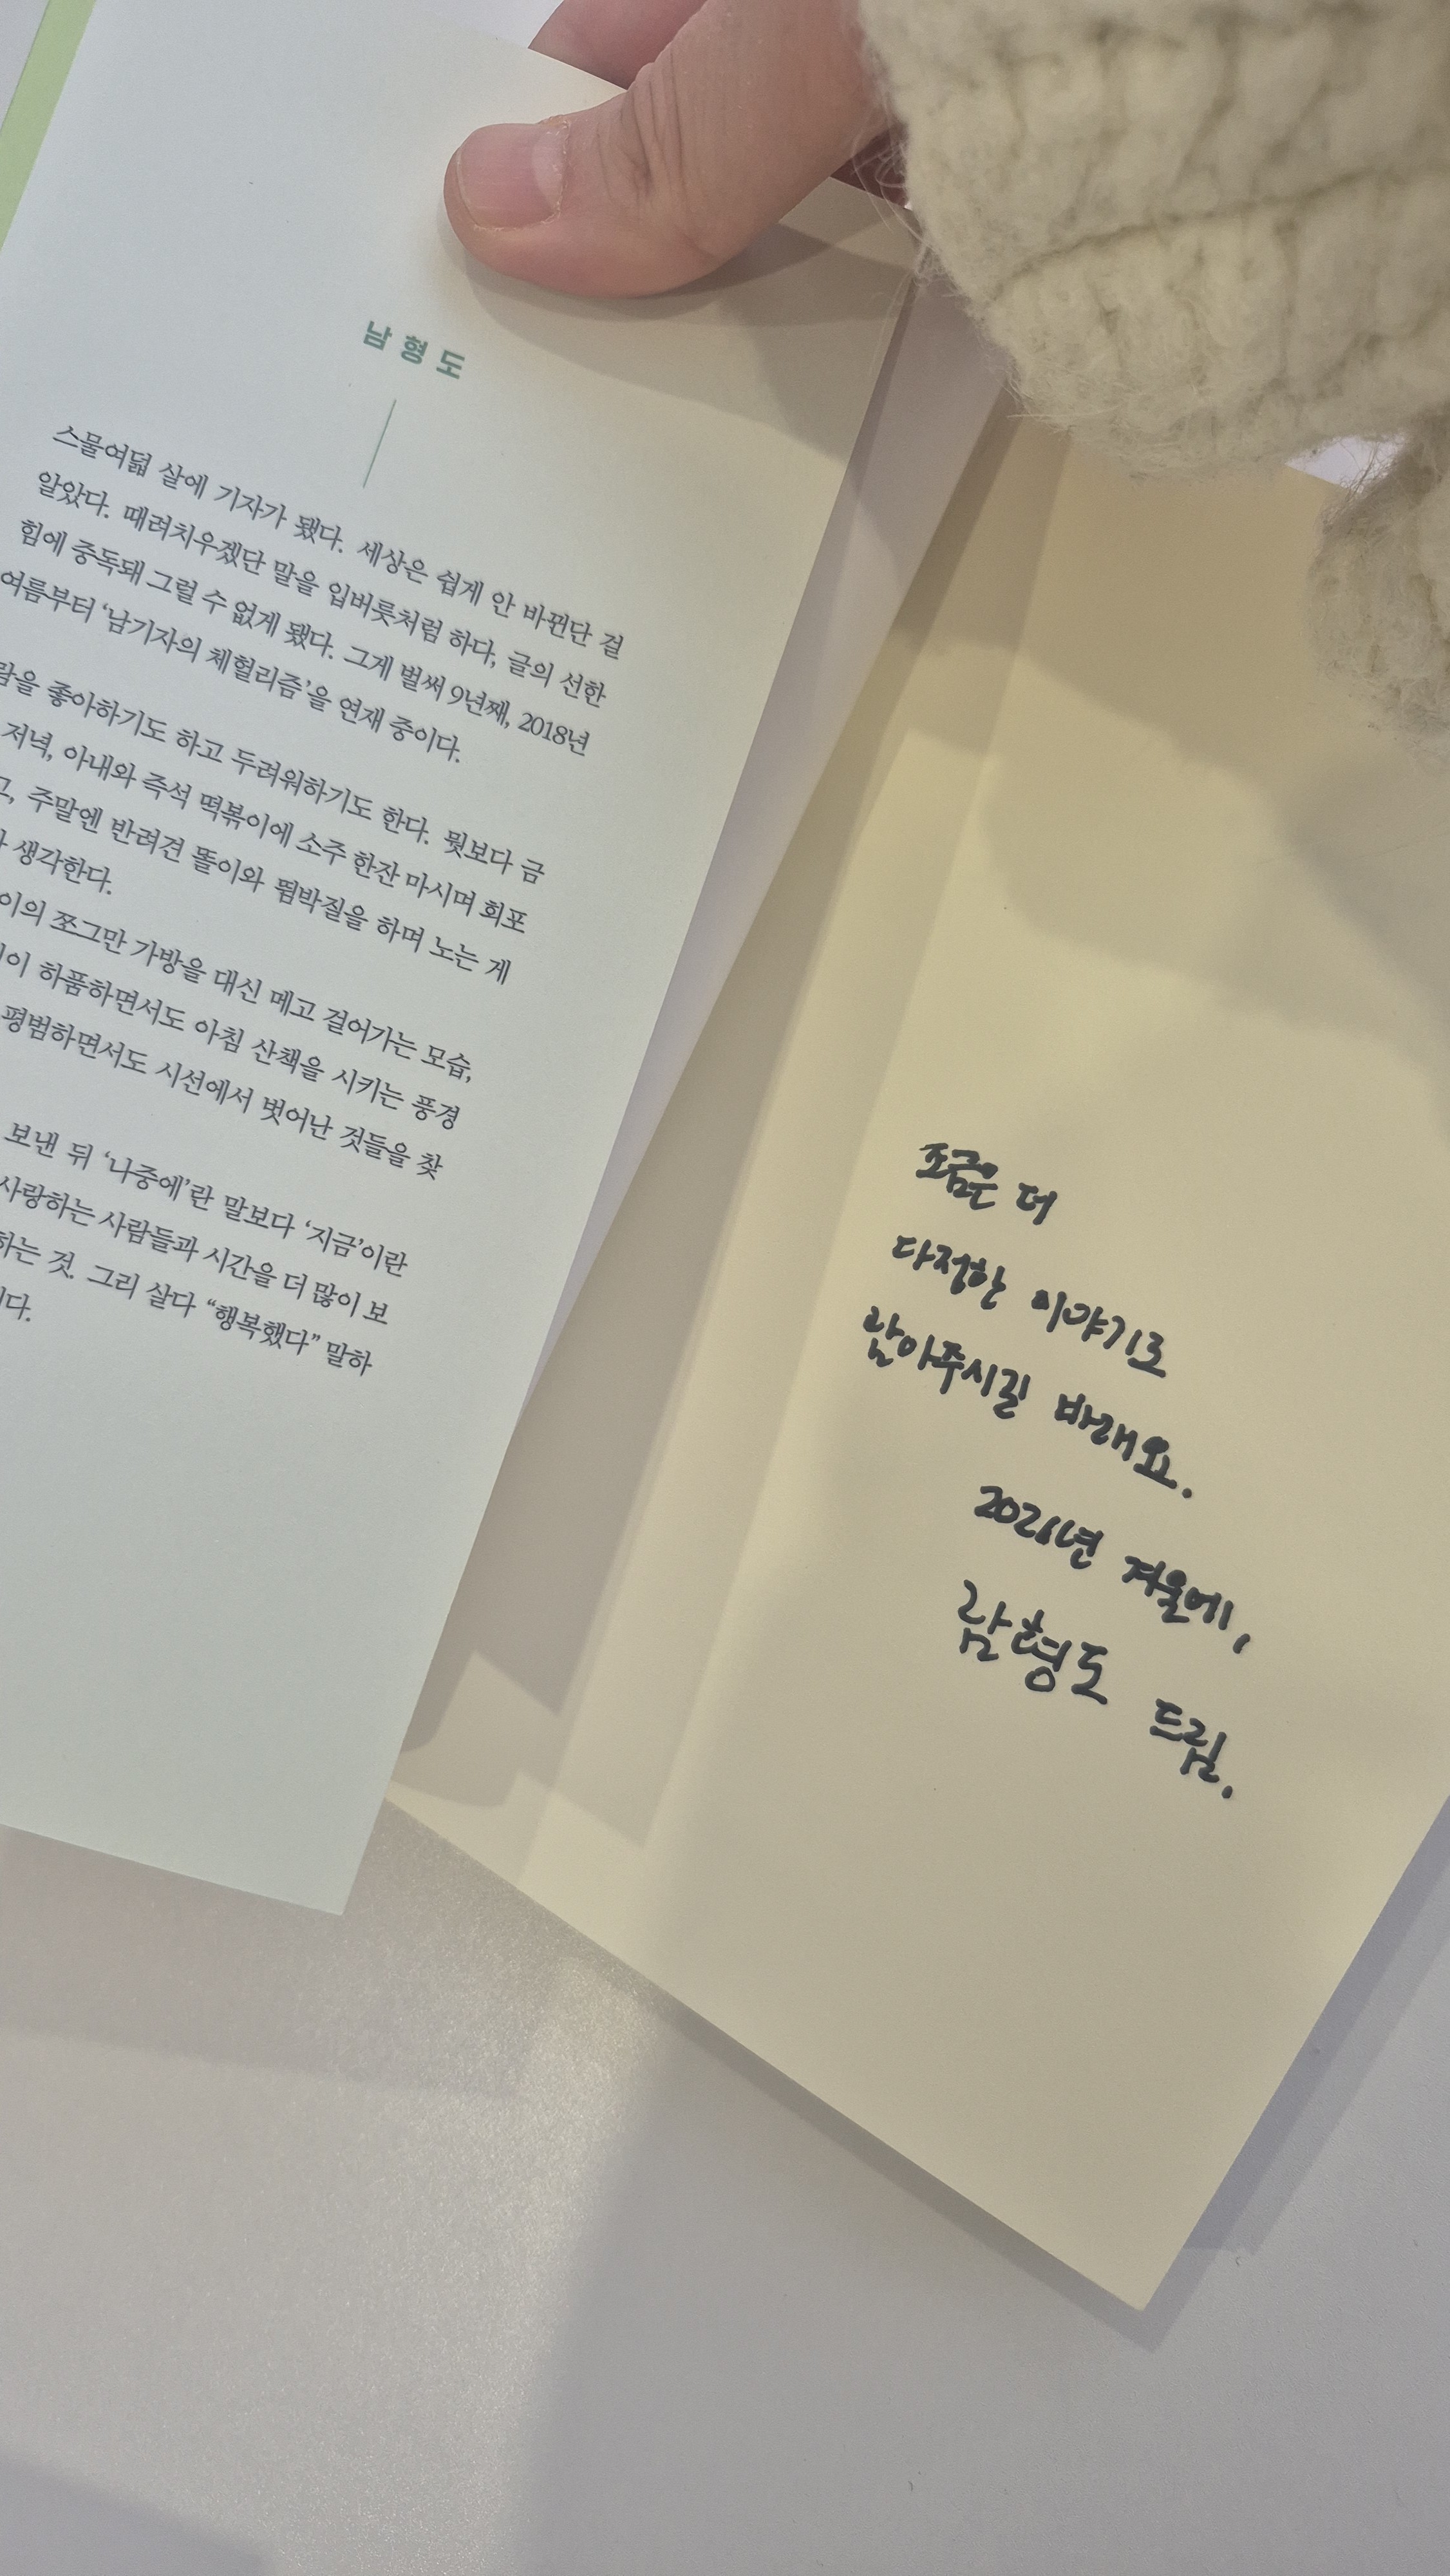 남형도
스물여덟 살에 기자가 됐다. 세상은 쉽게 안 바뀐단 걸
알았다. 때려치우겠단 말을 입버릇처럼 하다, 글의 선한
힘에 중독돼 그럴 수 없게 됐다. 그게 벌써 9년째, 2018년
여름부터 ‘남기자의 체헐리즘’을 연재 중이다.
을 좋아하기도 하고 두려워하기도 한다. 뭣보다 금
저녁, 아내와 즉석 떡볶이에 소주 한잔 마시며 회포
주말엔 반려견 똘이와 뜀박질을 하며 노는 게
생각한다.
이의 쪼그만 가방을 대신 메고 걸어가는 모습,
이 하품하면서도 아침 산책을 시키는 풍경
평범하면서도 시선에서 벗어난 것들을 찾
보낸 뒤 ‘나중에’란 말보다 ‘지금’이란
사랑하는 사람들과 시간을 더 많이 보
하는 것. 그리 살다 “행복했다” 말하
다.
조금은 더
다정한 이야기로
남아주시길 바래요.
2021년 겨울에,
남형도 드림.